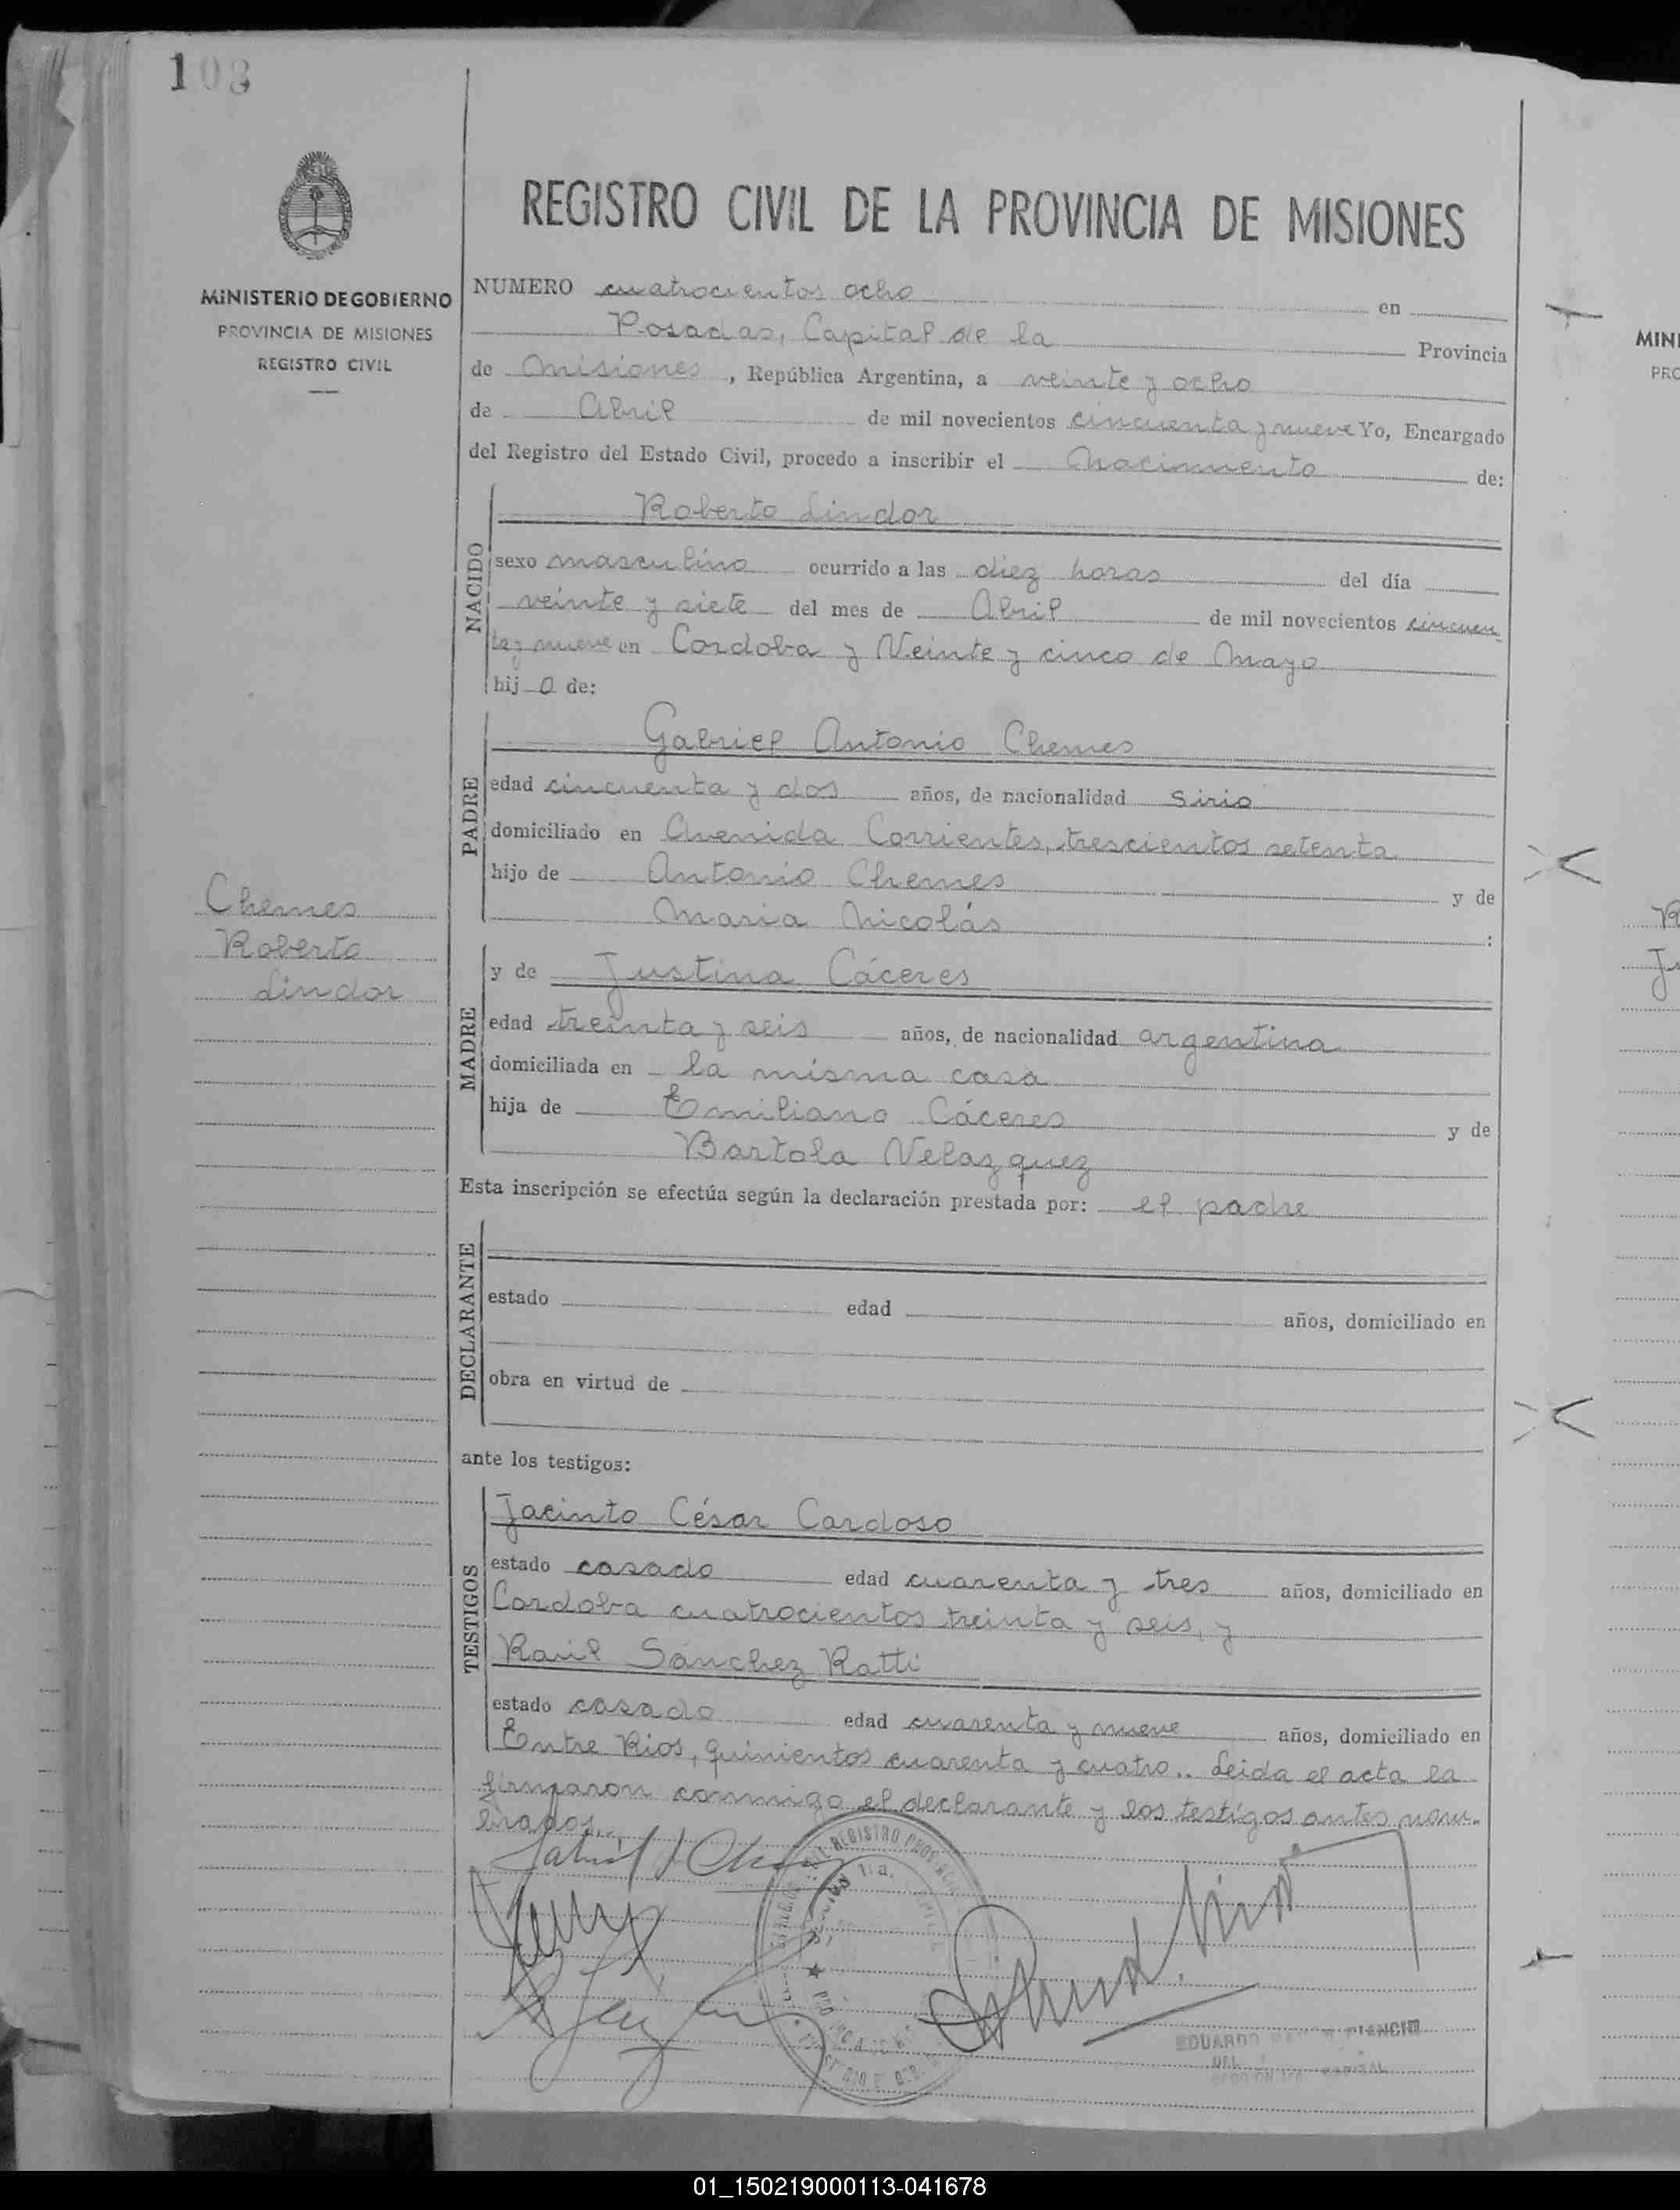 108
MINISTERIO DE GOBIERNO
PROVINCIA DE MISIONES
REGISTRO CIVIL
Chemes
Roberto
Lindor
REGISTRO CIVIL DE LA PROVINCIA DE MISIONES
NUMERO cuatrocientos ocho en
Posadas, Capital de la Provincia
de Misiones, República Argentina, a veinte y ocho
de Abril de mil novecientos cincuenta y nueve Yo, Encargado
del Registro del Estado Civil, procedo a inscribir el Nacimiento de:
NACIDO
Roberto Lindor
sexo masculino ocurrido a las diez horas del día
veinte y siete del mes de Abril de mil novecientos cincuen
ta y nueve en Cordoba y Veinte y cinco de Mayo
hij o de:
PADRE
Gabriel Antonio Chemes
edad cincuenta y dos años, de nacionalidad Siria
domiciliado en Avenida Corrientes, trescientos setenta
hijo de Antonio Chemes y de
Maria Nicolás :
MADRE
y de Justina Cáceres
edad treinta y seis años, de nacionalidad argentina
domiciliada en la misma casa
hija de Emiliano Cáceres y de
Bartola Velazquez
Esta inscripción se efectúa según la declaración prestada por: el padre
DECLARANTE
estado edad años, domiciliado en
obra en virtud de
ante los testigos:
TESTIGOS
Jacinto César Cardoso
estado casado edad cuarenta y tres años, domiciliado en
Cordoba cuatrocientos treinta y seis, y
Raúl Sánchez Ratti
estado casado edad cuarenta y nueve años, domiciliado en
Entre Rios, quinientos cuarenta y cuatro.. Leida el acta la
firmaron conmigo el declarante y los testigos antes nom-
brados..
REGISTRO
EDUARDO
CAPITAL
MINI
PRO
R
01_150219000113-041678